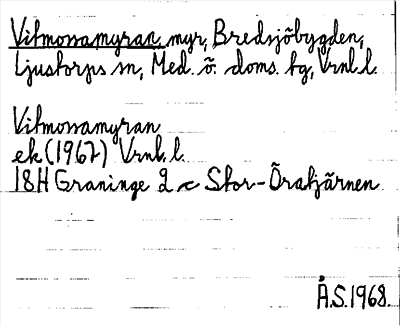 Vitmossamyran, myr, Bredsjöbygden,
Ljustorps sn, Med. ö. doms. tg, Vrnl.l.
Vitmossamyran
ek (1967) Vrnl. l.
18H Graninge 2 c Stor-Öratjärnen
Å.S. 1968.